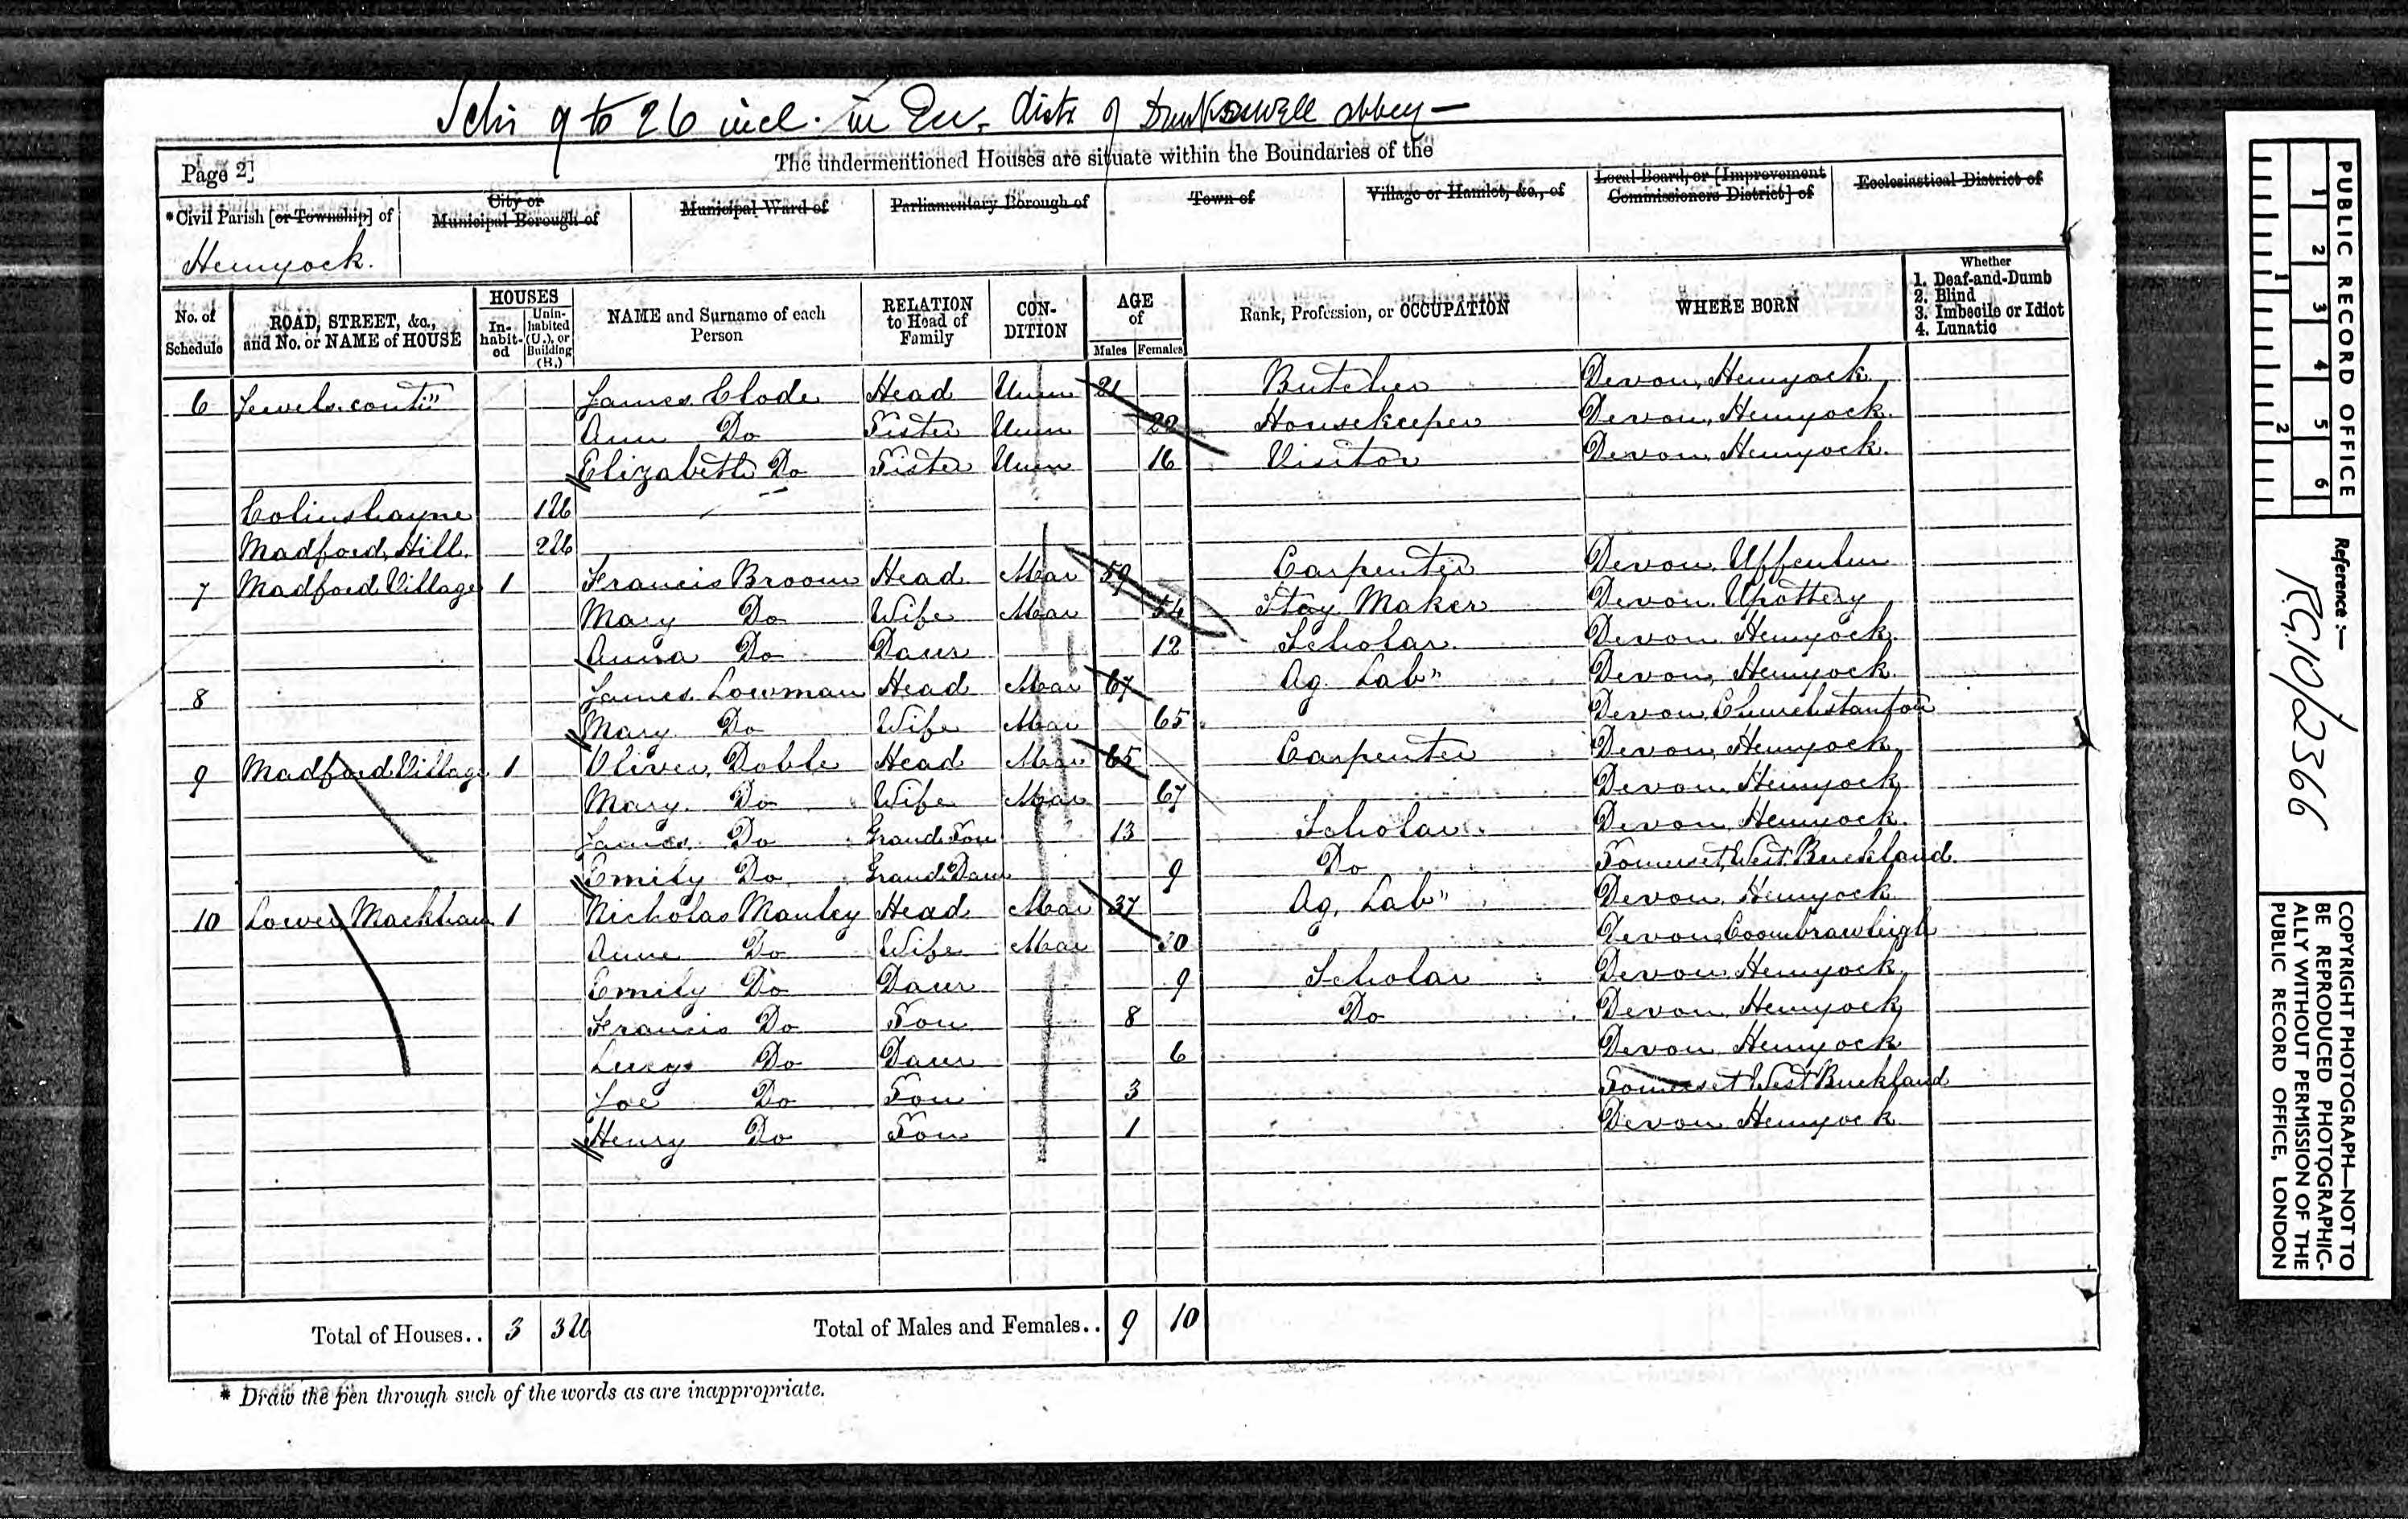 Sch: 9 to 26 incl. in En. distr of Dunkeswell Abbey —
Page 2]
The undermentioned Houses are situate within the Boundaries of the
*Civil Parish [or Township] of
City or Municipal Borough of
Municipal Ward of
Parliamentary Borough of
Town of
Village or Hamlet, &c., of
Local Board, or [Improvement Commissioners District] of
Ecclesiastical District of
Hemyock.
No. of Schedule
ROAD, STREET, &c., and No. or NAME of HOUSE
HOUSES
In-habit-ed
Unin-habited (U.), or Building (B.)
NAME and Surname of each Person
RELATION to Head of Family
CON-DITION
AGE of
Males Females
Rank, Profession, or OCCUPATION
WHERE BORN
Whether
1. Deaf-and-Dumb
2. Blind
3. Imbecile or Idiot
4. Lunatic
6 Jewels contd James Clode Head Unm 21 Butcher Devon, Hemyock
Ann Do Sister Unm 22 Housekeeper Devon, Hemyock.
Elizabeth Do Sister Unm 16 Visitor Devon, Hemyock.
Colinshayne 1 U
Madford Hill. 2 U
7 Madford Village 1 Francis Broom Head Mar 59 Carpenter Devon, Uffculm
Mary Do Wife Mar 54 Stay Maker Devon, Upottery
Anna Do Daur 12 Scholar. Devon, Hemyock
8 James Lowman Head Mar 67 Ag. Lab" Devon, Hemyock.
Mary Do Wife Mar 65 Devon, Churchstanton
9 Madford Village 1 Oliver Doble Head Mar 65 Carpenter Devon, Hemyock
Mary Do Wife Mar 67 Devon, Hemyock
James Do Grand Son 13 Scholar Devon, Hemyock.
Emily Do Grand Daur 9 Do Somerset, West Buckland
10 Lower Mackham 1 Nicholas Manley Head Mar 37 Ag. Lab" Devon, Hemyock
Anne Do Wife Mar 30 Devon, Coombrawleigh
Emily Do Daur 9 Scholar Devon, Hemyock
Francis Do Son 8 Do Devon, Hemyock
Lucy Do Daur 6 Devon, Hemyock
Joe Do Son 3 Somerset West Buckland
Henry Do Son 1 Devon Hemyock
Total of Houses.. 3 3 U Total of Males and Females.. 9 10
* Draw the pen through such of the words as are inappropriate.
PUBLIC RECORD OFFICE
1 2 3 4 5 6
1 2
Reference :—
R.G. 10/2366
COPYRIGHT PHOTOGRAPH—NOT TO
BE REPRODUCED PHOTOGRAPHIC-
ALLY WITHOUT PERMISSION OF THE
PUBLIC RECORD OFFICE, LONDON